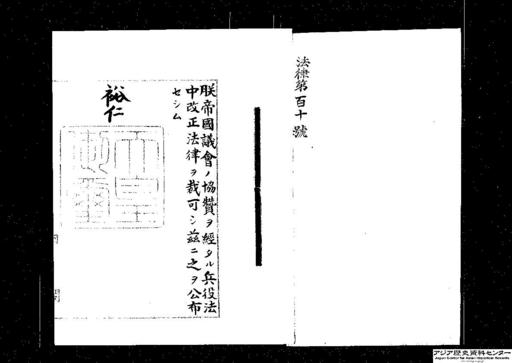 法律第百十號
朕帝國議會ノ協贊ヲ經タル兵役法
中改正法律ヲ裁可シ茲ニ之ヲ公布
セシム
裕仁
天皇
御璽
アジア歴史資料センター
Japan Center for Asian Historical Records